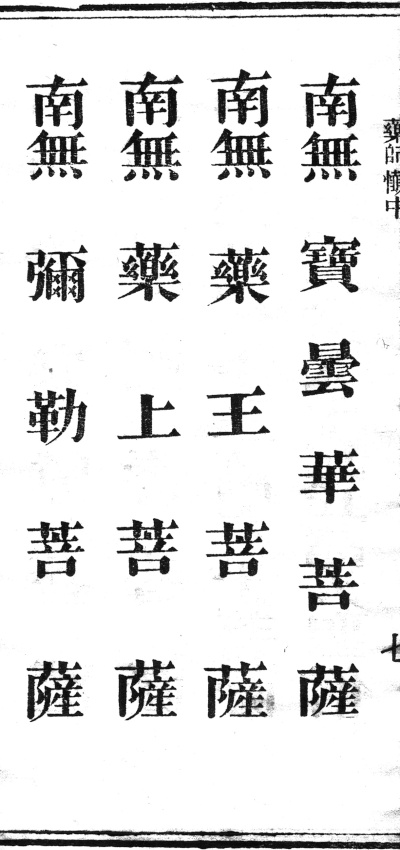 藥師懺中
七
南無寶曇華菩薩
南無藥王菩薩
南無藥上菩薩
南無彌勒菩薩